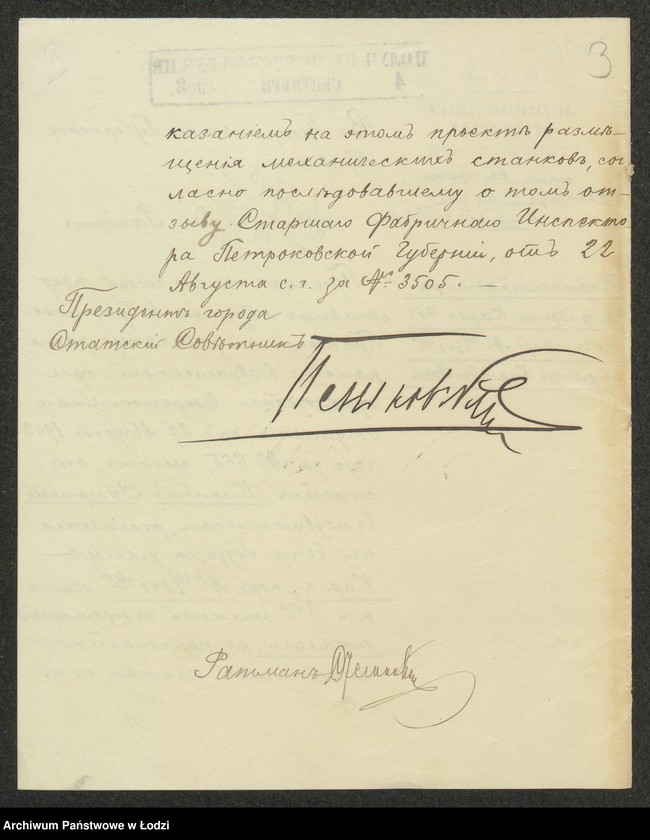 3
казаніемъ на этомъ проектѣ размѣ-
щенія механическихъ станковъ, сог
ласно послѣдовавшему о томъ от-
зыву Старшаго Фабричнаго Инспекто-
ра Петроковской Губерніи, отъ 22
Августа с. г. за № 3505. —
Президентъ города
Статскій Совѣтникъ
Пеньковскій
Ратманъ
Archiwum Państwowe w Łodzi